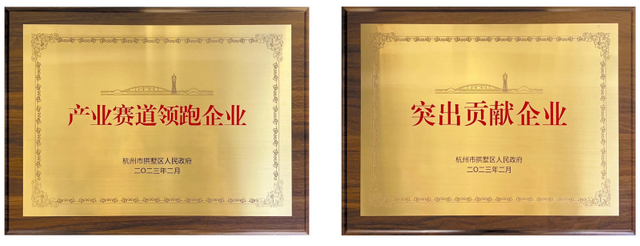 产业赛道领跑企业
杭州市拱墅区人民政府
二〇二三年二月
突出贡献企业
杭州市拱墅区人民政府
二〇二三年二月